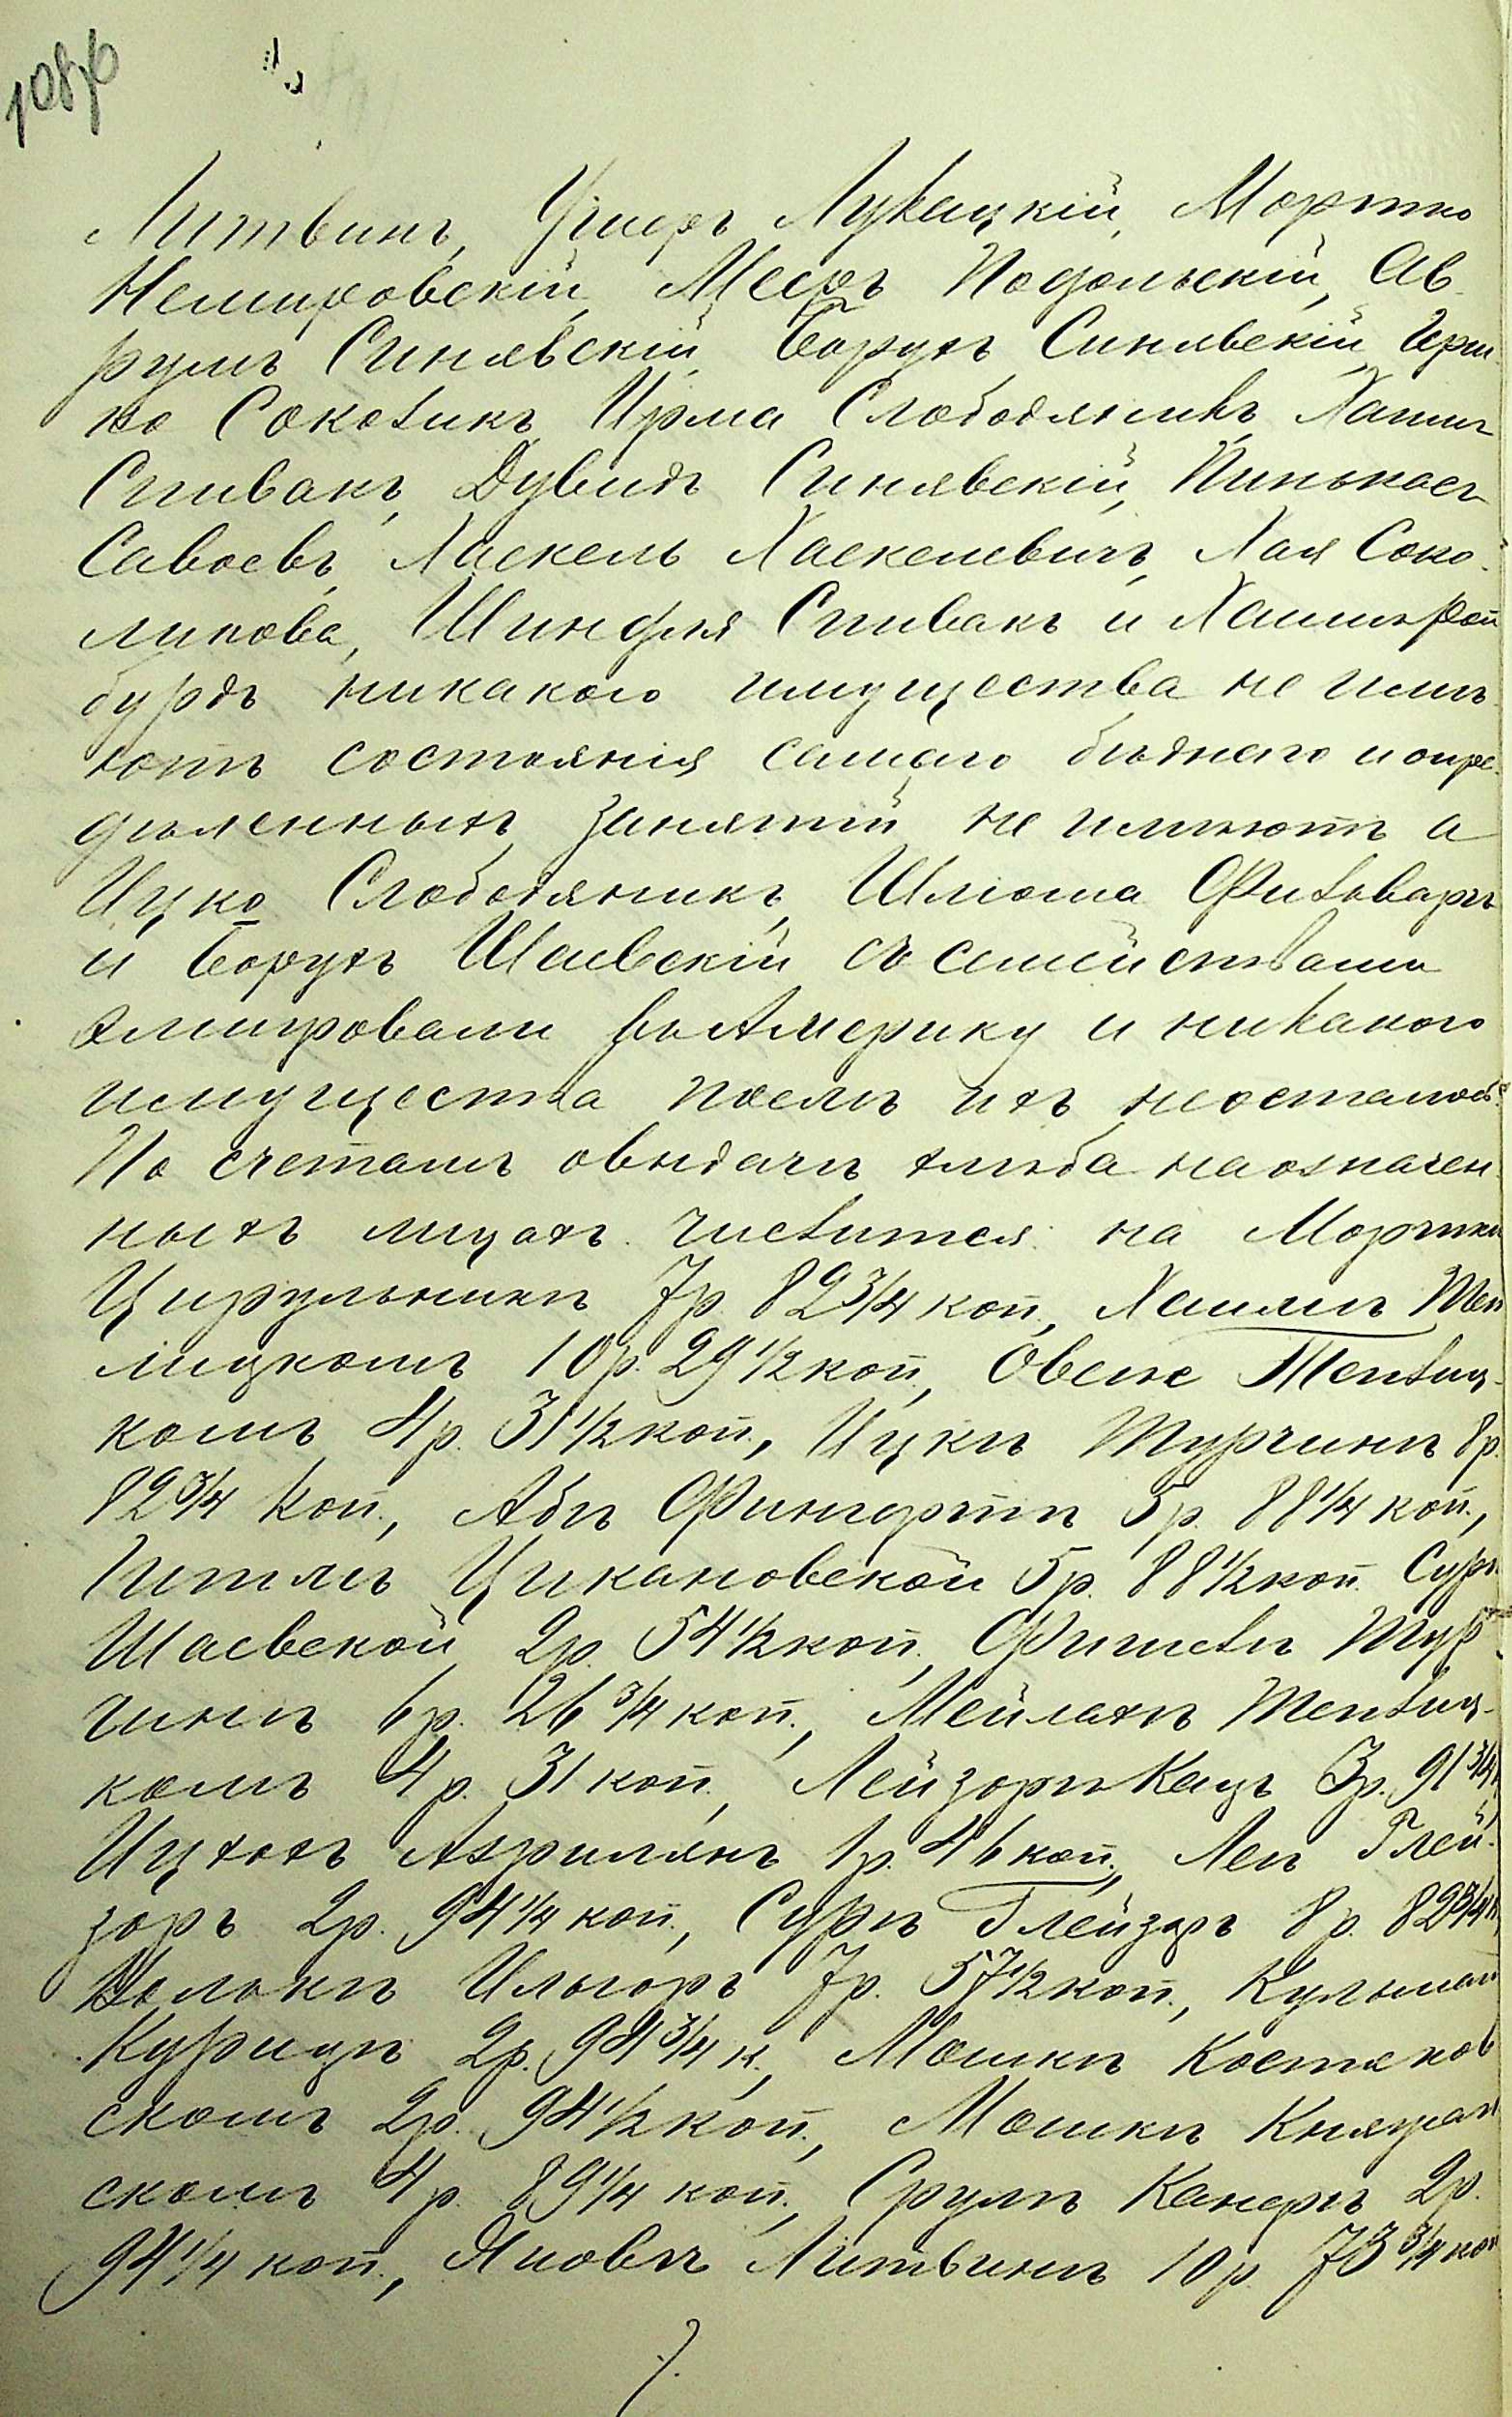 108об
Литвинъ, Ушеръ Лукацкій, Мортко
Немировскій, Мееръ Подольскій, Ав-
румъ Синявскій, Борухъ Синявскій, Герш-
ко Соколикъ, Ирма Слободяникъ, Хаимъ
Спивакъ, Дувидъ Синявскій, Пинькасъ
Савоевъ, Хаскель Хаскелевичъ, Хая Соко-
ликова, Шиндля Спивакъ и Хаимъ Рой
бурдъ никакого имущества не имѣ-
ютъ состоянія самаго бѣднаго и опре-
дѣленныхъ занятій не имѣютъ а
Ицко Слободяникъ, Шлюма Фильваръ
и Борухъ Шаевскій съ семействами
эмигровали въ Америку и никакого
имущества послѣ ихъ неосталось
По счетамъ овыдачѣ хлѣба наозначен
ныхъ лицахъ числится: на Мортки
Цирульникѣ 7р. 82¾ коп., Хаимѣ Теп
лицкомъ 10р. 29½ коп., Овсее Теплиц-
комъ 4р. 31½ коп., Ицкѣ Турчинѣ 8р.
82¾ коп., Абѣ Фингертѣ 5р. 88¼ коп.,
Гитлѣ Цикановской 5р. 88½ коп. Сурѣ
Шаевской 2р. 54½ коп., Фишелѣ Тур-
чинѣ 6р. 26¾ коп., Мейлахѣ Теплиц-
комъ 4р. 31 коп., Лейзорѣ Кацъ 3р. 91¾ к
Ицхохъ Априлянъ 1р. 46 коп., Леѣ Глей-
зоръ 2р. 94¼ коп., Сурѣ Глейзоръ 8р. 82¾ к
Волькѣ Ильгоръ 7р. 57½ коп., Кульман
Курицѣ 2р. 94¾ к., Мошкѣ Костянов
скомъ 2р. 94½ коп., Мошкѣ Княжан
скомъ 4р. 89¼ коп., Срулѣ Канеръ 2р.
94¼ коп., Яновѣ Литвинѣ 10р. 73¾ коп